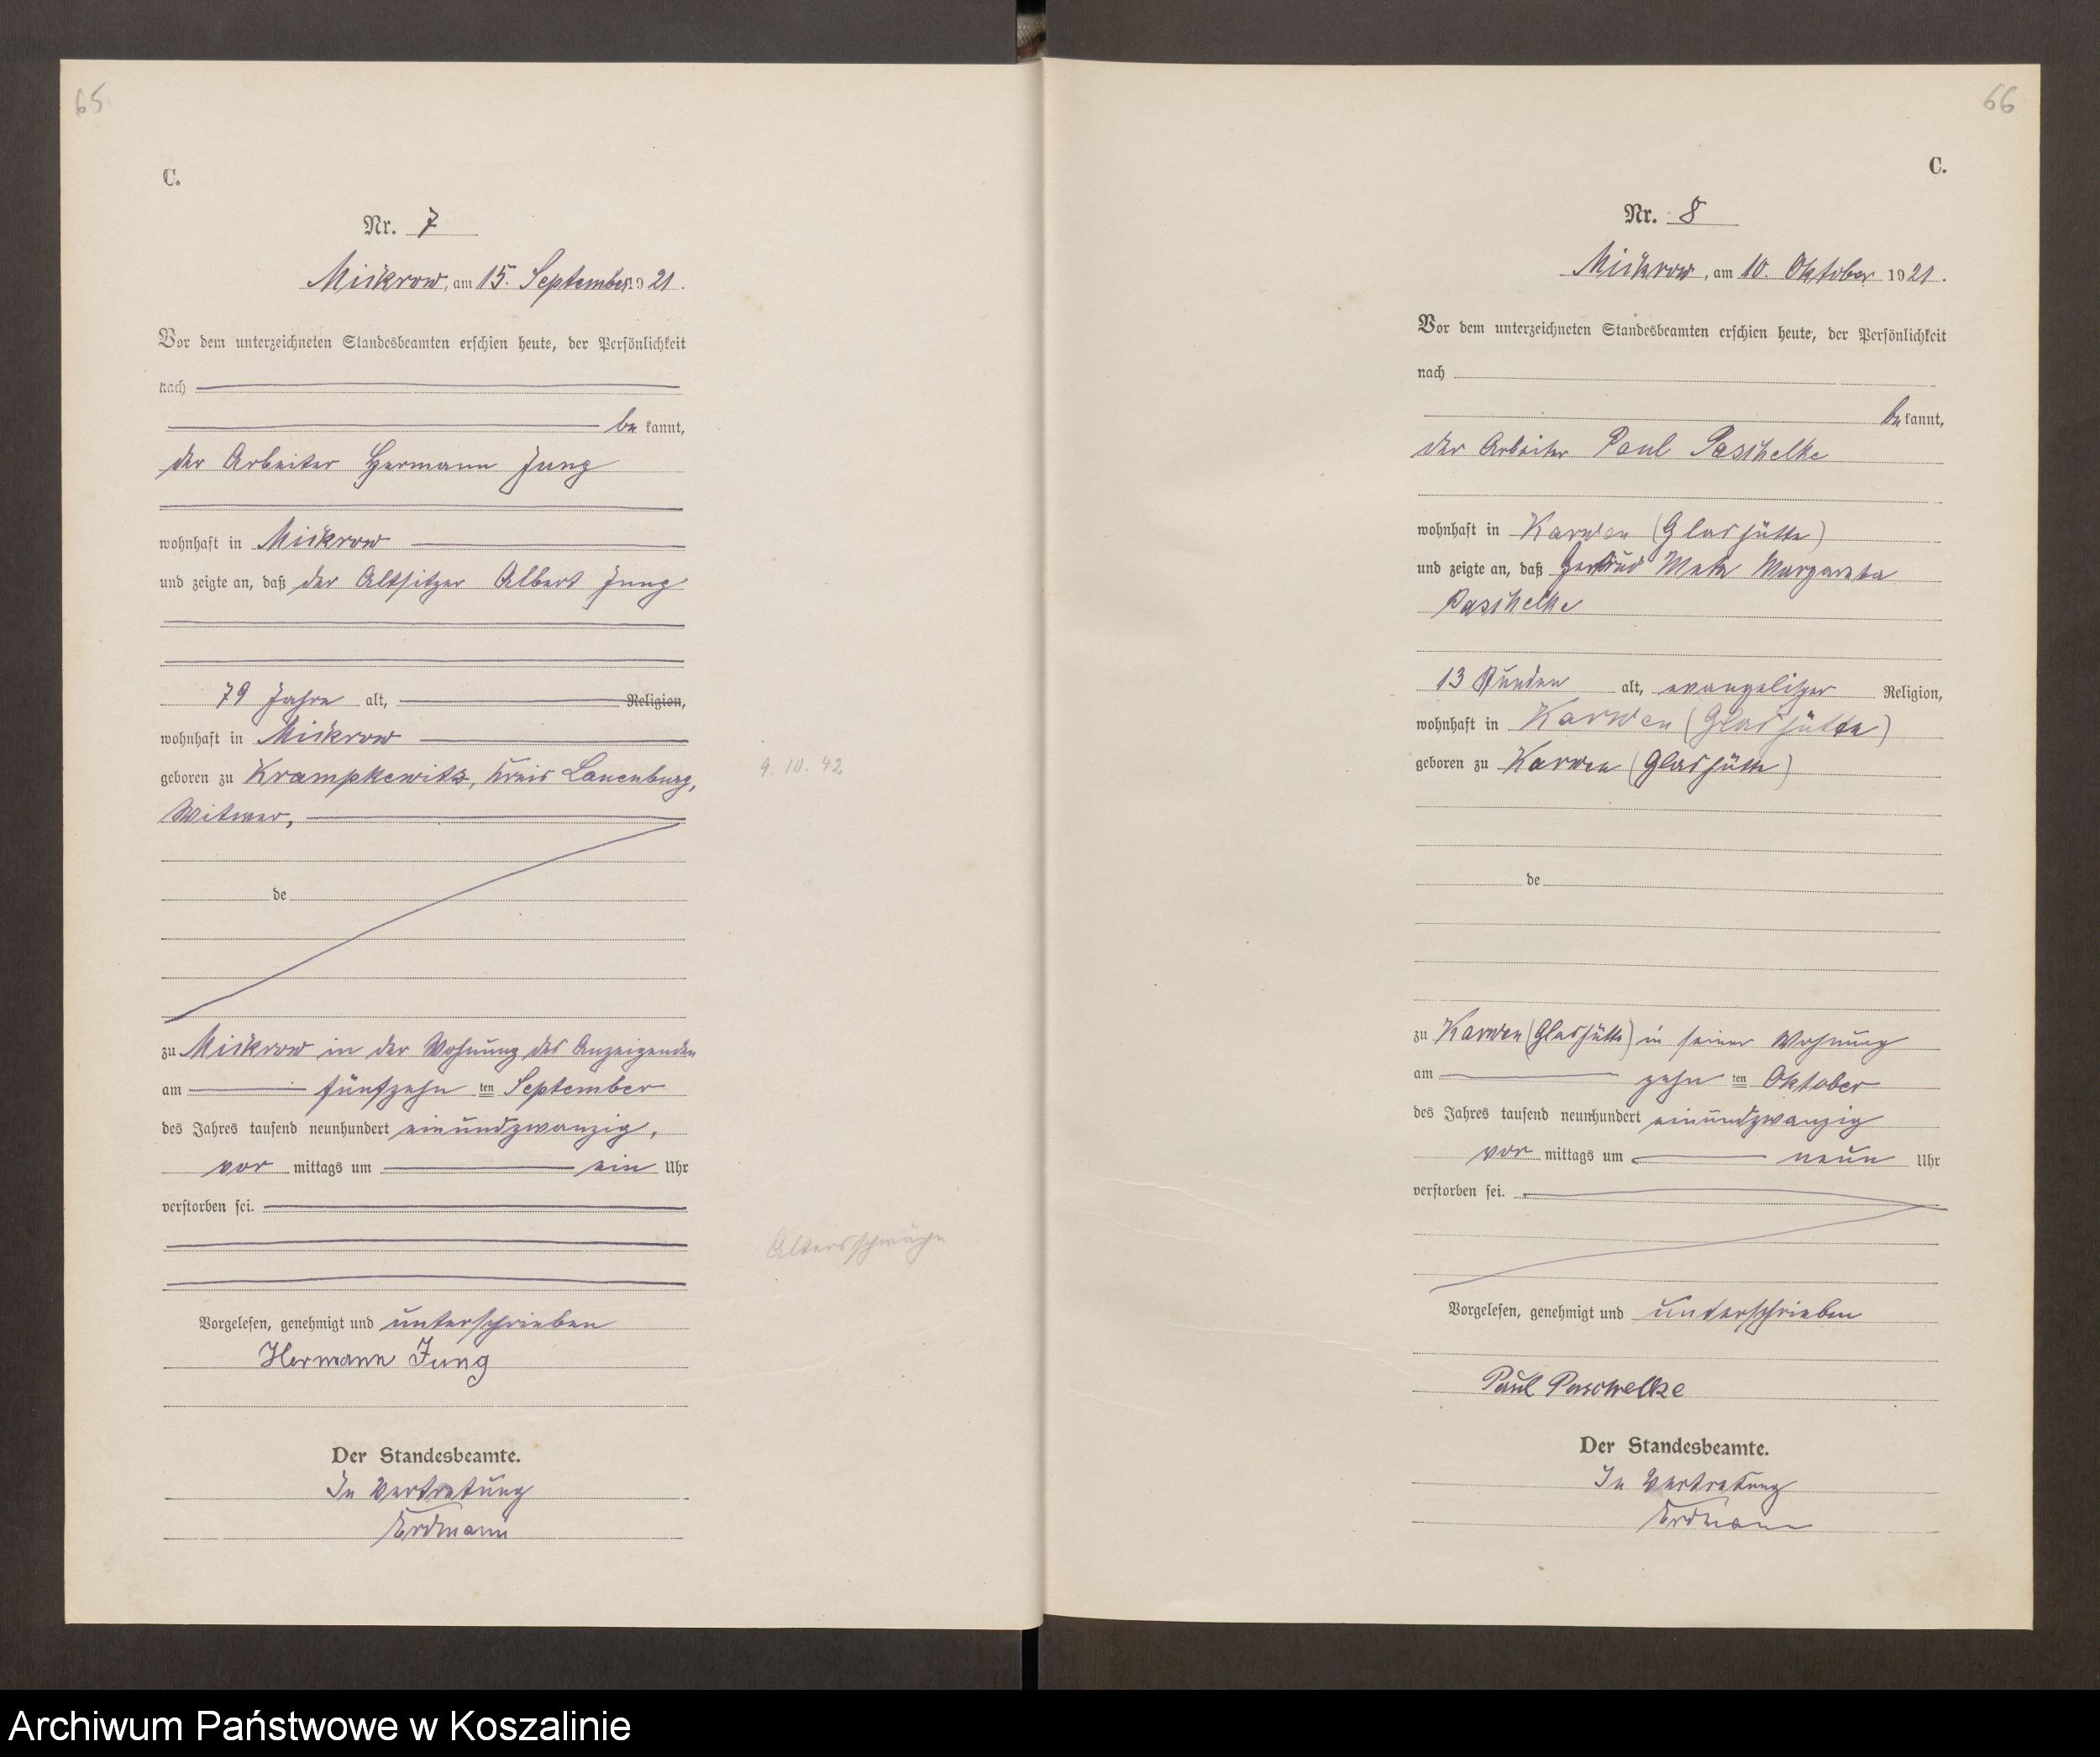 65
C.
Nr. 7
Mickrow, am 15. September 1921.
Vor dem unterzeichneten Standesbeamten erschien heute, der Persönlichkeit
nach
be kannt,
der Arbeiter Hermann Jung
wohnhaft in Mickrow
und zeigte an, daß der Altsitzer Albert Jung
79 Jahre alt, Religion,
wohnhaft in Mickrow
geboren zu Krampkewitz, Kreis Lauenburg,
9. 10. 42
Witwer,
de
zu Mickrow in der Wohnung des Anzeigenden
am fünfzehn ten September
des Jahres tausend neunhundert einundzwanzig,
vor mittags um ein Uhr
verstorben sei.
Altersschwäche
Vorgelesen, genehmigt und unterschrieben
Hermann Jung
Der Standesbeamte.
In Vertretung
Erdmann
66
C.
Nr. 8
Mickrow, am 10. Oktober 1921.
Vor dem unterzeichneten Standesbeamten erschien heute, der Persönlichkeit
nach
be kannt,
der Arbeiter Paul Paschelke
wohnhaft in Karwen (Glashütte)
und zeigte an, daß Gertrud Meta Margareta
Paschelke
13 Stunden alt, evangelischer Religion,
wohnhaft in Karwen (Glashütte)
geboren zu Karwen (Glashütte)
de
zu Karwen (Glashütte) in seiner Wohnung
am zehn ten Oktober
des Jahres tausend neunhundert einundzwanzig
vor mittags um neun Uhr
verstorben sei.
Vorgelesen, genehmigt und unterschrieben
Paul Paschelke
Der Standesbeamte.
In Vertretung
Erdmann
Archiwum Państwowe w Koszalinie